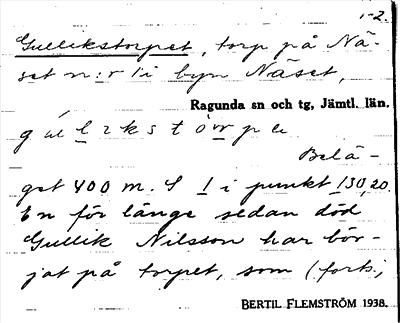 1-2.
Gullikstorpet, torp på Nä-
set n:r 1 i byn Näset,
Ragunda sn och tg, Jämtl. län.
Belä-
get 400 m. S 1 i punkt 130,20.
En för länge sedan död
Gullik Nilsson har bör-
jat på torpet, som (forts.,
BERTIL FLEMSTRÖM 1938.